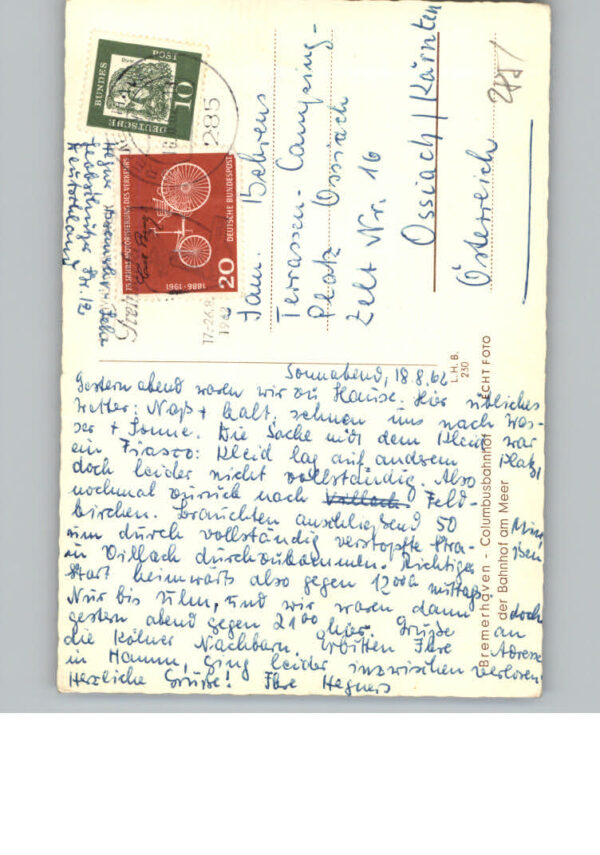 Sonnabend, 18.8.62
Gestern abend waren wir zu Hause. Hier übliches
Wetter: Naß + kalt, sehnen uns nach Was-
ser + Sonne. Die Sache mit dem Kleid war
ein Fiasco: Kleid lag auf anderem Platz,
doch leider nicht vollständig. Also
nochmal zurück nach Feld-
kirchen. Brauchten anschließend 50 Min.
um durch vollständig verstopfte Stra-
ßen in Villach durchzukommen. Richtiger
Start heimwärts also gegen 12 00h mittags
Nur bis Ulm, und wir waren dann doch
gestern abend gegen 21 00 hier. Grüße an
die Kölner Nachbarn. Erbitten Ihre Adresse
in Hamm, ging leider inzwischen verloren.
Herzliche Grüße! Ihre Hegners
Fam. Behrens
Terrassen-Camping-
Platz Ossiach
Zelt Nr. 16
Ossiach/Kärnten
Österreich
Hegner
Deutschland
DEUTSCHE BUNDESPOST
10
75 JAHRE MOTORISIERUNG DES VERKEHRS
DEUTSCHE BUNDESPOST
20
1886-1961
285
L.H.B.
230
ECHT FOTO
Bremerhaven - Columbusbahnhof
der Bahnhof am Meer